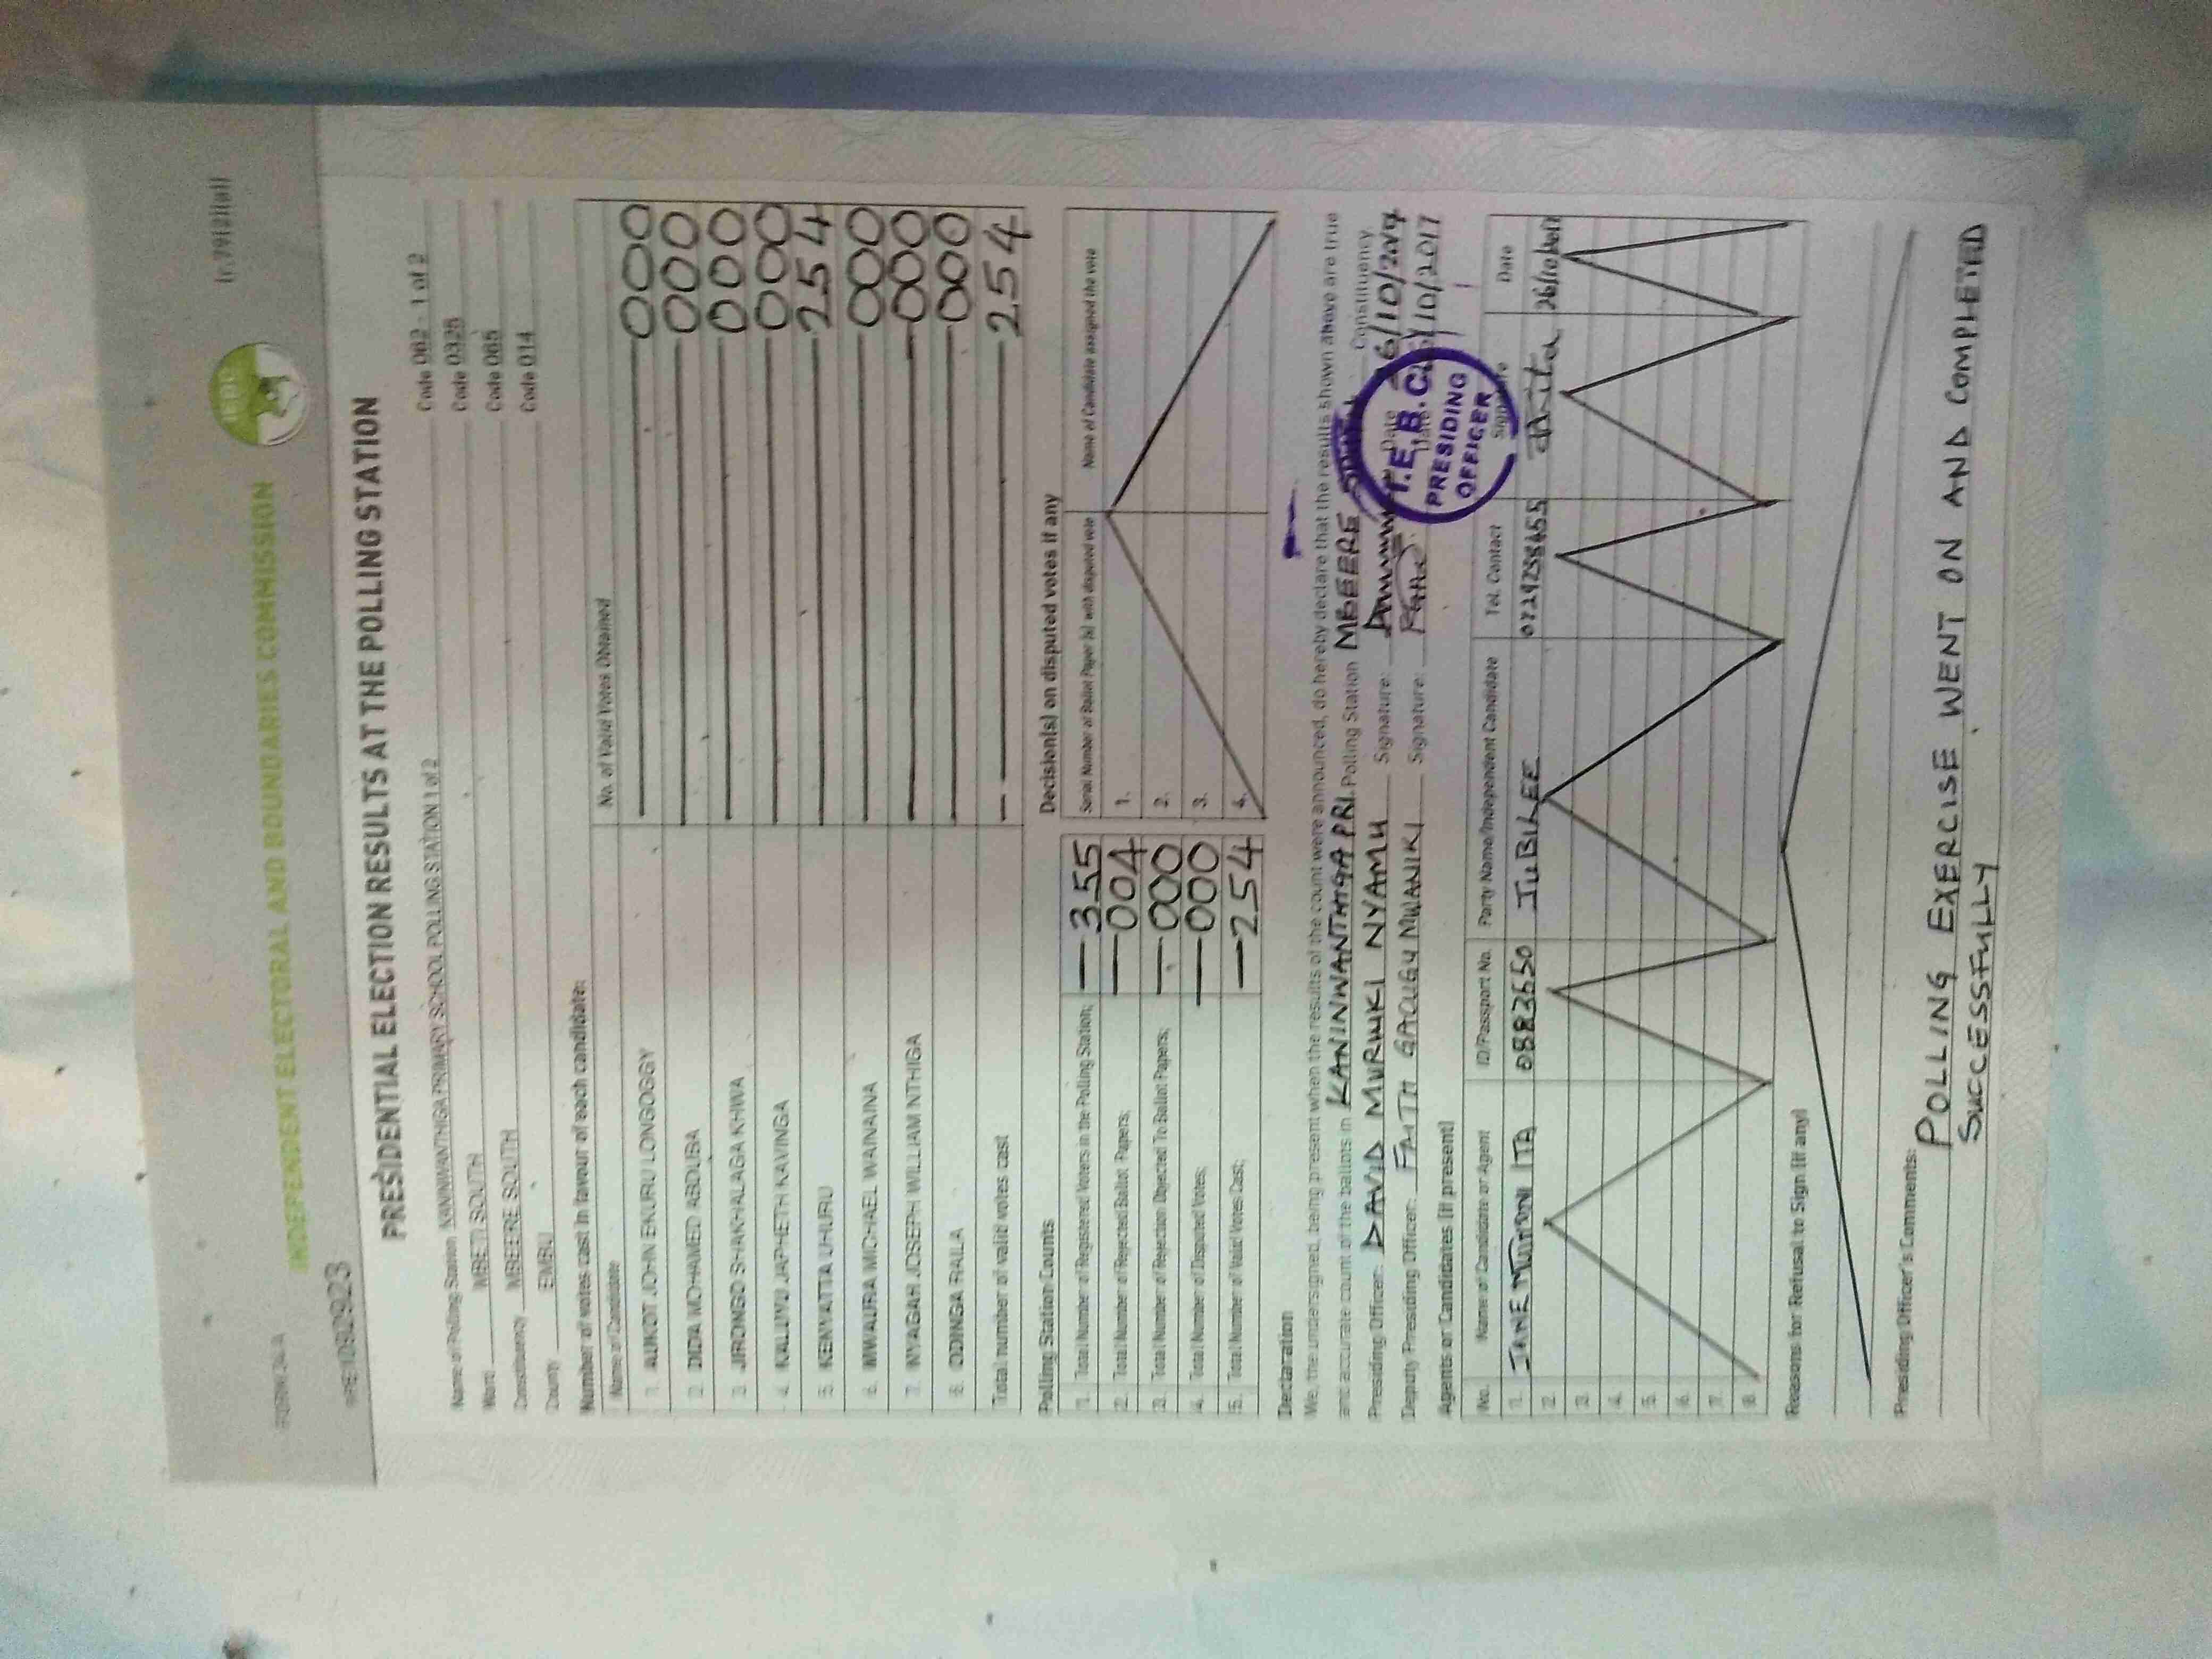 FORM 34A
(r.79(2)(a))
INDEPENDENT ELECTORAL AND BOUNDARIES COMMISSION
IEBC
PRE1092923
PRESIDENTIAL ELECTION RESULTS AT THE POLLING STATION
Name of Polling Station KANINWANTHIGA PRIMARY SCHOOL POLLING STATION 1 of 2 Code 062 - 1 of 2
Ward MBETI SOUTH Code 0325
Constituency MBEERE SOUTH Code 065
County EMBU Code 014
Number of votes cast in favour of each candidate:
Name of Candidate No. of Valid Votes Obtained
1. AUKOT JOHN EKURU LONGOGGY 000
2. DIDA MOHAMED ABDUBA 000
3. JIRONGO SHAKHALAGA KHWA 000
4. KALUYU JAPHETH KAVINGA 000
5. KENYATTA UHURU 254
6. MWAURA MICHAEL WAINAINA 000
7. NYAGAH JOSEPH WILLIAM NTHIGA 000
8. ODINGA RAILA 000
Total number of valid votes cast 254
Polling Station Counts
1. Total Number of Registered Voters in the Polling Station; 355
2. Total Number of Rejected Ballot Papers; 004
3. Total Number of Rejection Objected To Ballot Papers; 000
4. Total Number of Disputed Votes; 000
5. Total Number of Valid Votes Cast; 254
Decision(s) on disputed votes if any
Serial Number of Ballot Paper (s) with disputed vote Name of Candidate assigned the vote
1.
2.
3.
4.
Declaration
We, the undersigned, being present when the results of the count were announced, do hereby declare that the results shown above are true
and accurate count of the ballots in KANINWANTHIGA PRI. Polling Station MBEERE SOUTH Constituency
Presiding Officer: DAVID MURIUKI NYAMU Signature: Date 26/10/2017
Deputy Presiding Officer: FAITH GACUGU MWANIKI Signature: Date 26/10/2017
I.E.B.C.
PRESIDING
OFFICER
Agents or Candidates (if present)
No. Name of Candidate or Agent ID/Passport No. Party Name/Independent Candidate Tel. Contact Signature Date
1. JANE MUTHONI ITA 0883650 JUBILEE 26/10/2017
2.
3.
4.
5.
6.
7.
8.
Reasons for Refusal to Sign (if any)
Presiding Officer's Comments:
POLLING EXERCISE WENT ON AND COMPLETED
SUCCESSFULLY